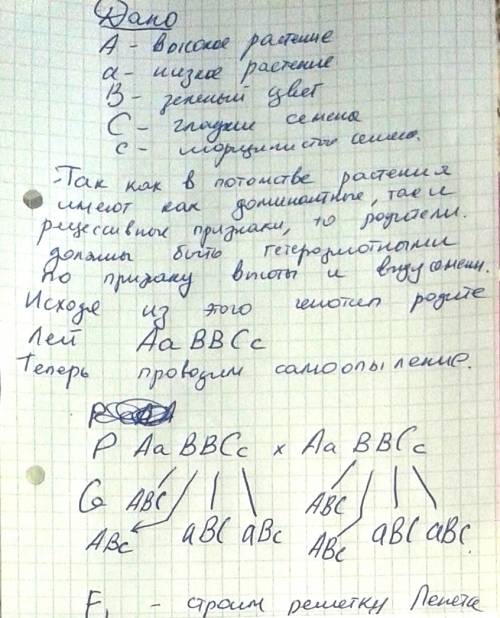 Дано
А - высокое растение
а - низкое растение
В - зеленый цвет
С - гладкие семена
с - морщинистые семена.
-Так как в потомстве растения
имеют как доминантные, так и
рецессивные признаки, то родители
должны быть гетерозиготными
по признаку высоты и виду семян.
Исходя из этого генотип родите
лей АаВВСс
Теперь проводим самоопыление.
Р АаВВСс х АаВВСс
G АВС АВс аВС аВс АВС АВс аВС аВс
F₁ - строим решетку Пенета